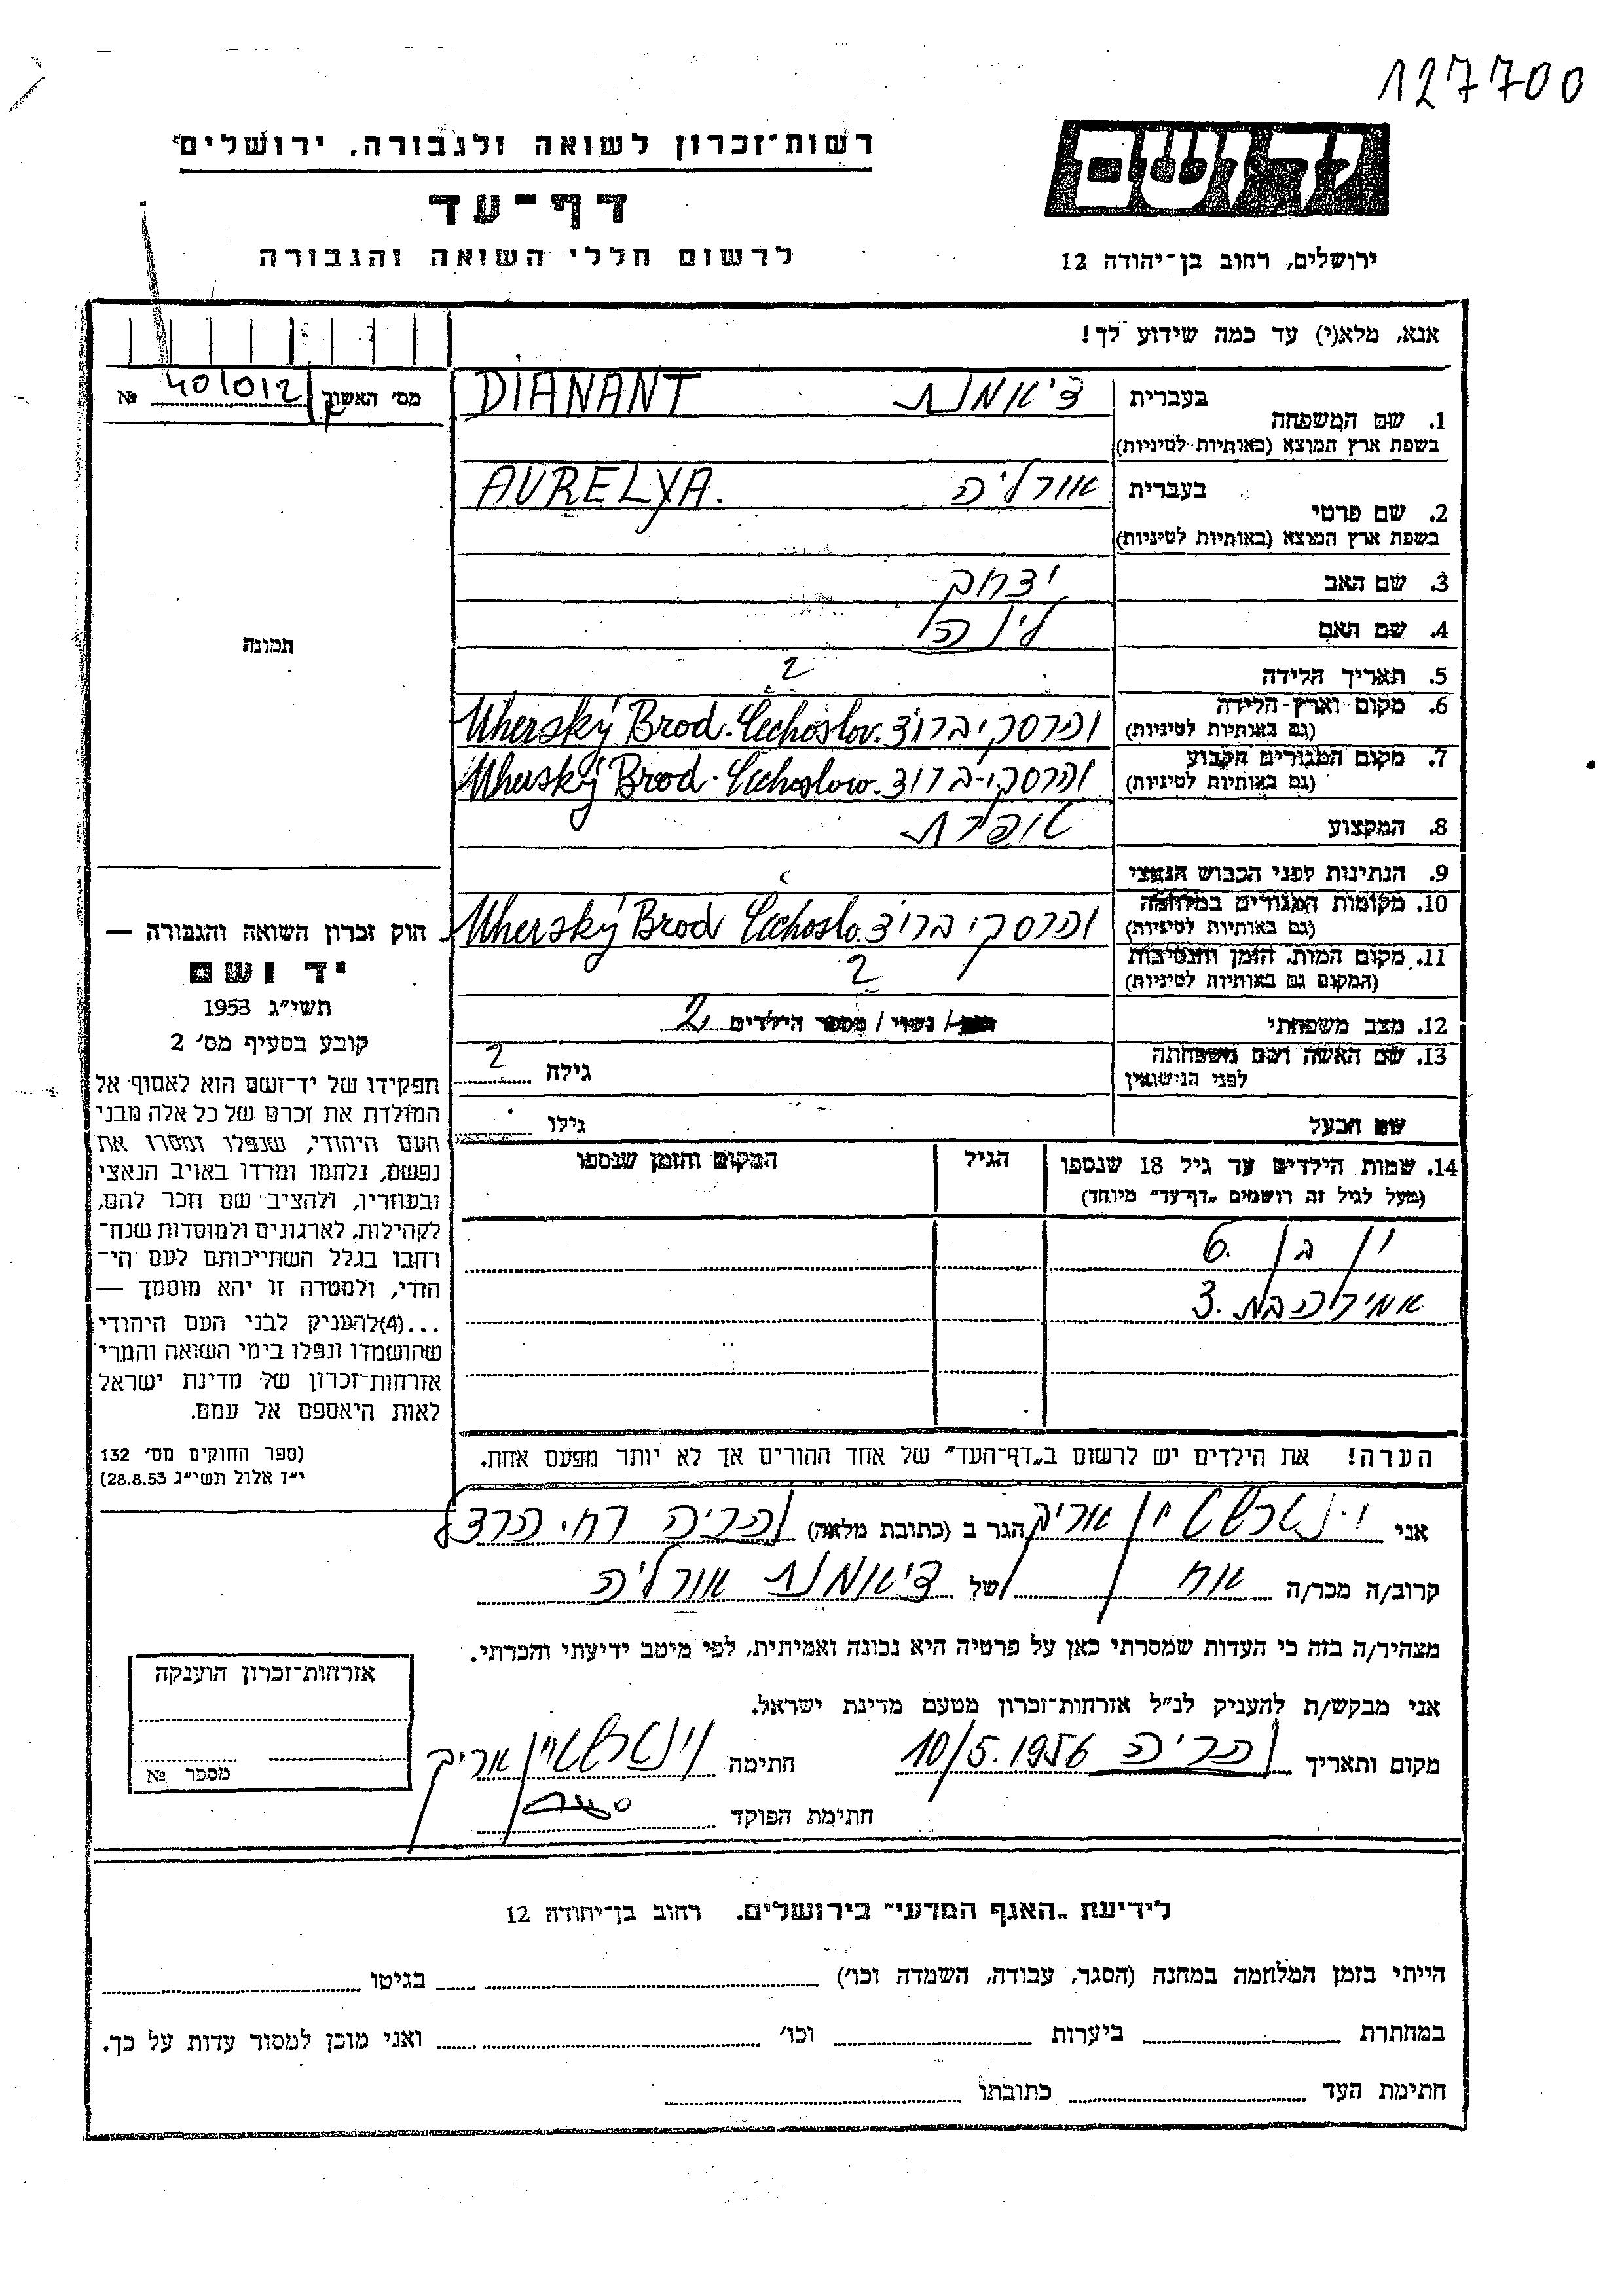 127700
רשות־זכרון לשואה ולגבורה, ירושלים
יד ושם
דף־עד
לרשום חללי השואה והגבורה
ירושלים, רחוב בן־יהודה 12
אנא, מלא(י) עד כמה שידוע לך!
מס׳ האשור 401012 №
בעברית דיאמנט DIANANT
1. שם המשפחה
בשפת ארץ המוצא (באותיות לטיניות)
בעברית אורליה AURELYA.
2. שם פרטי
בשפת ארץ המוצא (באותיות לטיניות)
3. שם האב יצחק
4. שם האם לינה
5. תאריך הלידה ?
6. מקום וארץ הלידה והרסקי ברוד Uherský Brod. Cechoslov.
(גם באותיות לטיניות)
7. מקום המגורים הקבוע והרסקי-ברוד Uherský Brod. Cechoslow.
(גם באותיות לטיניות)
8. המקצוע תופרת
9. הנתינות לפני הכבוש הנאצי
10. מקומות המגורים במלחמה והרסקי ברוד Uherský Brod Cechoslo.
(גם באותיות לטיניות)
11. מקום המות, הזמן והנסיבות ?
(המקום גם באותיות לטיניות)
12. מצב משפחתי / נשוי / מספר הילדים 2
13. שם האשה ושם משפחתה גילה ?
לפני הנישואין
שם הבעל גילו
תמונה
חוק זכרון השואה והגבורה —
יד ושם
תשי״ג 1953
קובע בסעיף מס׳ 2
תפקידו של יד־ושם הוא לאסוף אל
המולדת את זכרם של כל אלה מבני
העם היהודי, שנפלו ומסרו את
נפשם, נלחמו ומרדו באויב הנאצי
ובעוזריו, ולהציב שם וזכר להם,
לקהילות, לארגונים ולמוסדות שנח־
רבו בגלל השתייכותם לעם הי־
הודי, ולמטרה זו יהא מוסמך —
...(4)להעניק לבני העם היהודי
שהושמדו ונפלו בימי השואה והמרי
אזרחות־זכרון של מדינת ישראל
לאות היאספם אל עמם.
(ספר החוקים מס׳ 132
י״ז אלול תשי״ג 28.8.53)
14. שמות הילדים עד גיל 18 שנספו הגיל המקום והזמן שנספו
(מעל לגיל זה רושמים „דף־עד״ מיוחד)
ין בן 6.
בת 3.
הערה! את הילדים יש לרשום ב„דף־העד״ של אחד ההורים אך לא יותר מפעם אחת.
אני וינטרשטיין אריק הגר ב (כתובת מלאה) נהריה רח׳ הרצל
קרוב/ה מכר/ה אח של דיאמנט אורליה
מצהיר/ה בזה כי העדות שמסרתי כאן על פרטיה היא נכונה ואמיתית, לפי מיטב ידיעתי והכרתי.
אני מבקש/ת להעניק לנ״ל אזרחות־זכרון מטעם מדינת ישראל.
מקום ותאריך נהריה 10/5.1956 חתימה וינטרשטיין אריק
חתימת הפוקד
אזרחות־זכרון הוענקה
מספר №
לידיעת „האגף המדעי״ בירושלים. רחוב בן־יהודה 12
הייתי בזמן המלחמה במחנה (הסגר, עבודה, השמדה וכו׳) בגיטו
במחתרת ביערות וכו׳ ואני מוכן למסור עדות על כך.
חתימת העד כתובתו